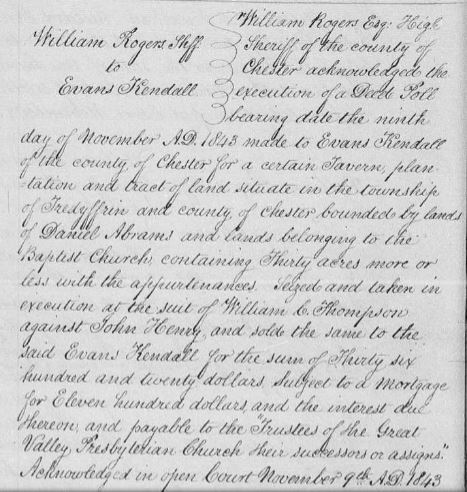 William Rogers Shff
to
Evans Kendall
William Rogers Esq. High
Sheriff of the county of
Chester acknowledged the
execution of a Deed Poll
bearing date the ninth
day of November A.D. 1843 made to Evans Kendall
of the county of Chester for a certain Tavern, plan-
-tation and tract of land situate in the township
of Tredyffrin and county of Chester bounded by lands
of Daniel Abrams and lands belonging to the
Baptist Church, containing Thirty acres more or
less with the appurtenances. Seized and taken in
execution at the suit of William C. Thompson
against John Henry, and sold the same to the
said Evans Kendall for the sum of Thirty six
hundred and twenty dollars, Subject to a Mortgage
for Eleven hundred dollars, and the interest due
thereon, and payable to the "Trustees of the Great
Valley Presbyterian Church their successors or assigns."
Acknowledged in open Court November 9th A.D. 1843